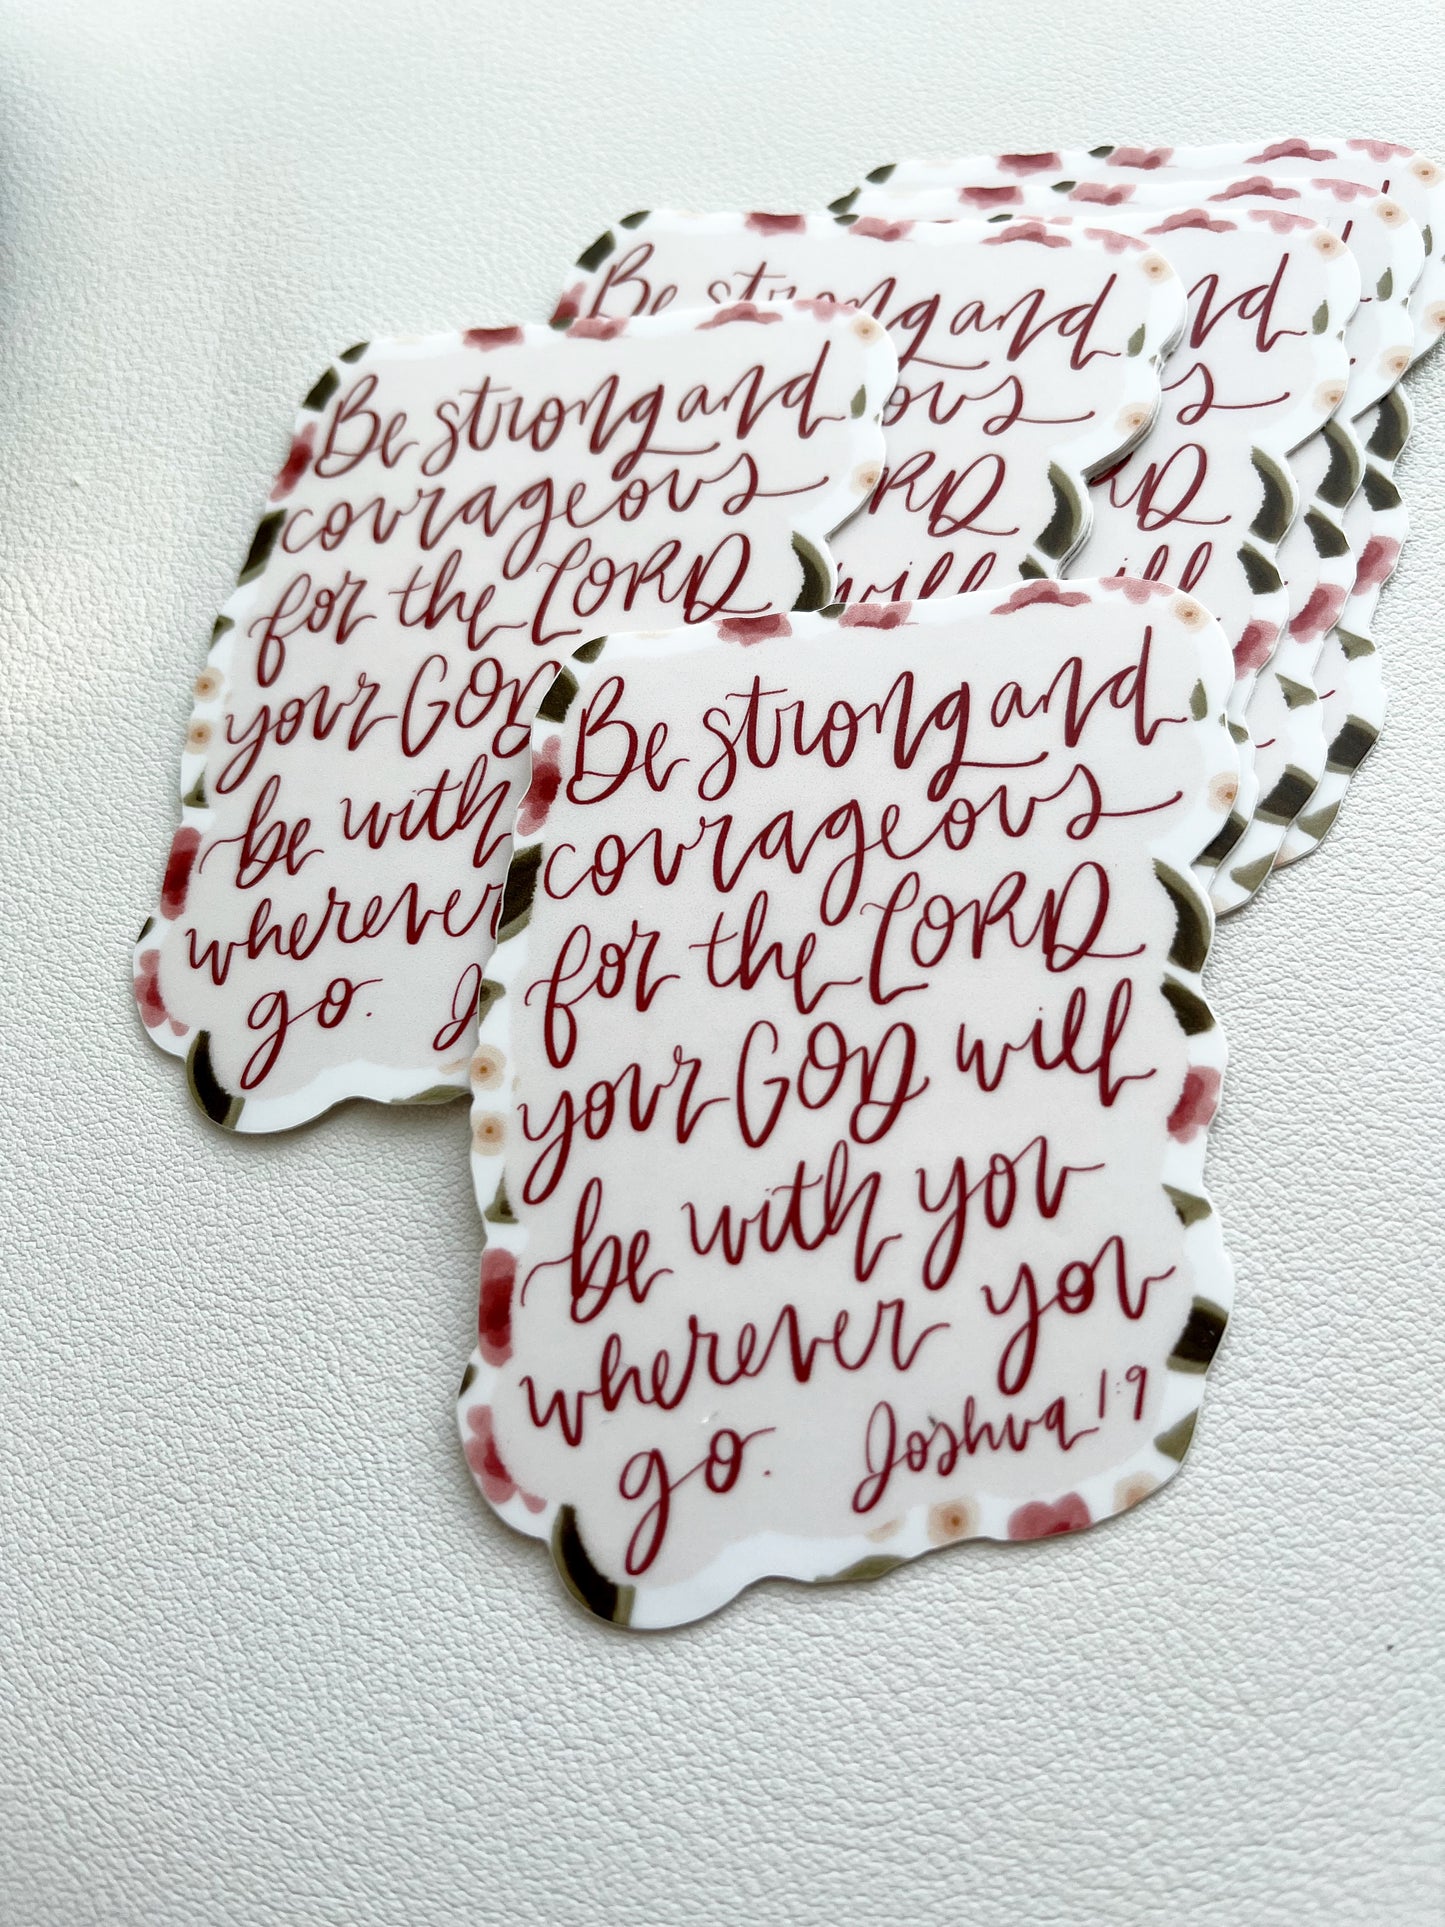 Be strong and
courageous
for the LORD
your GOD will
be with you
wherever you
go. Joshua 1:9
Be strong and
courageous
for the LORD
your GOD
be with
wherever
go.
Be strong and